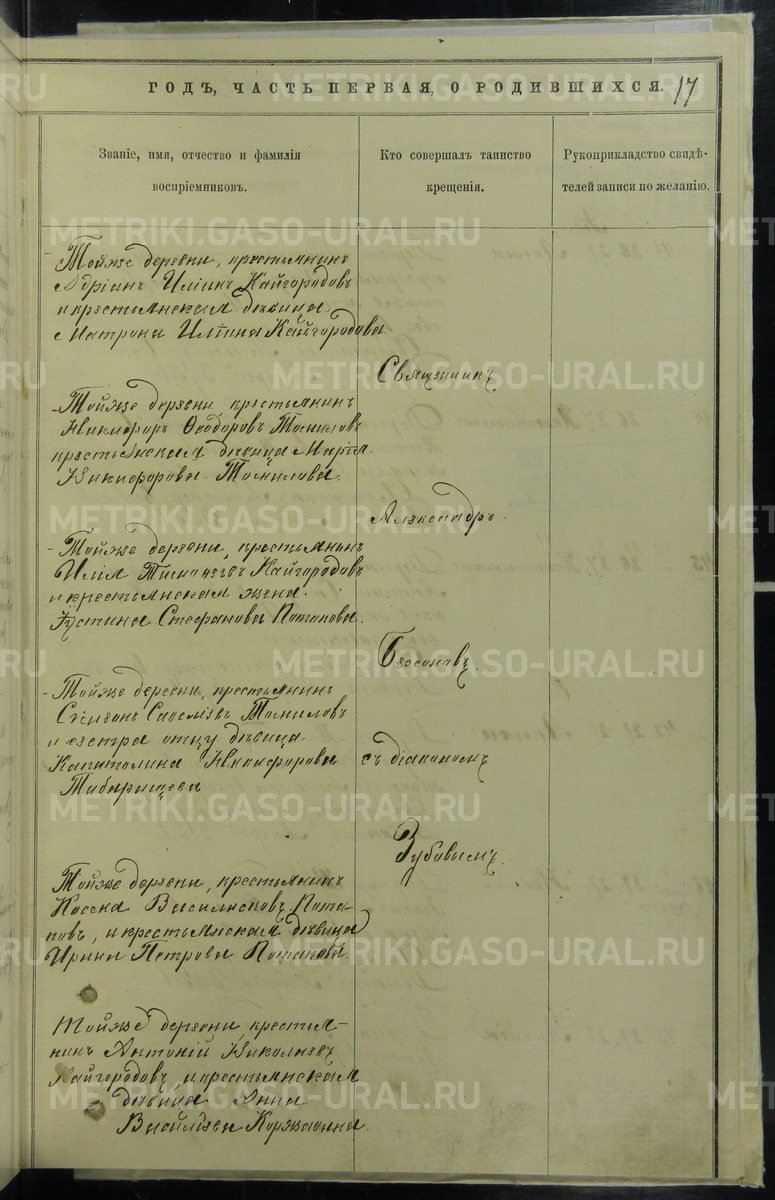 ГОДЪ, ЧАСТЬ ПЕРВАЯ, О РОДИВШИХСЯ. 17
Званіе, имя, отчество и фамилія воспріемниковъ.
Кто совершалъ таинство крещенія.
Рукоприкладство свидѣтелей записи по желанію.
Тойже деревни, крестьянинъ
Адріанъ Иліинъ Кайгородовъ
и крестьянская дѣвица
Матрона Иліина Кайгородова.
Священникъ
Тойже деревни, крестьянинъ
Никифоръ Ѳеодоровъ Томиловъ
крестьянская дѣвица Марія
Никифорова Томилова.
Александръ
Тойже деревни, крестьянинъ
Илія Кайгородовъ
и крестьянская жена
Іустина Стефанова Потапова.
Тойже деревни, крестьянинъ
Томиловъ
и сестра отцу дѣвица
Капитолина Никифорова
съ діакономъ
Зубовымъ.
Тойже деревни, крестьянинъ
Васильевъ Пота-
повъ, и крестьянская дѣвица
Ирина Петрова Потапова.
Тойже деревни, крестья-
нинъ Антоній Николаевъ
Кайгородовъ, и крестьянская
дѣвица Анна
METRIKI.GASO-URAL.RU